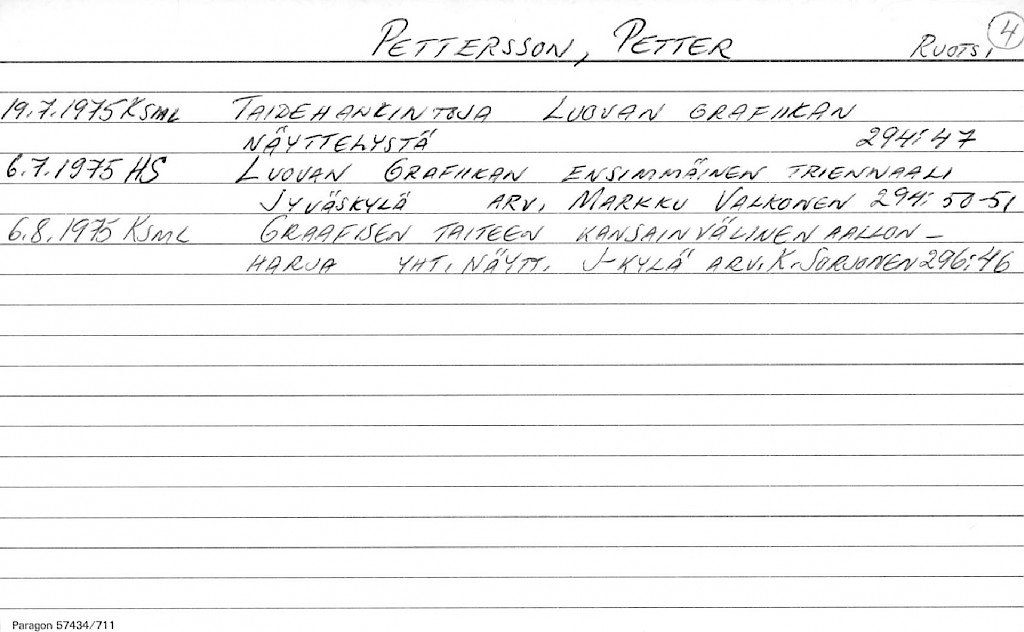 PETTERSSON, PETTER RUOTSI 4
19.7.1975 KSML TAIDEHANKINTOJA LUOVAN GRAFIIKAN
NÄYTTELYSTÄ 294:47
6.7.1975 HS LUOVAN GRAFIIKAN ENSIMMÄINEN TRIENNAALI
JYVÄSKYLÄ ARV. MARKKU VALKONEN 294:50-51
6.8.1975 KSML GRAAFISEN TAITEEN KANSAINVÄLINEN AALLON-
HARJA YHT. NÄYTT. J-KYLÄ ARV. K. SORJONEN 296:46
Paragon 57434/711